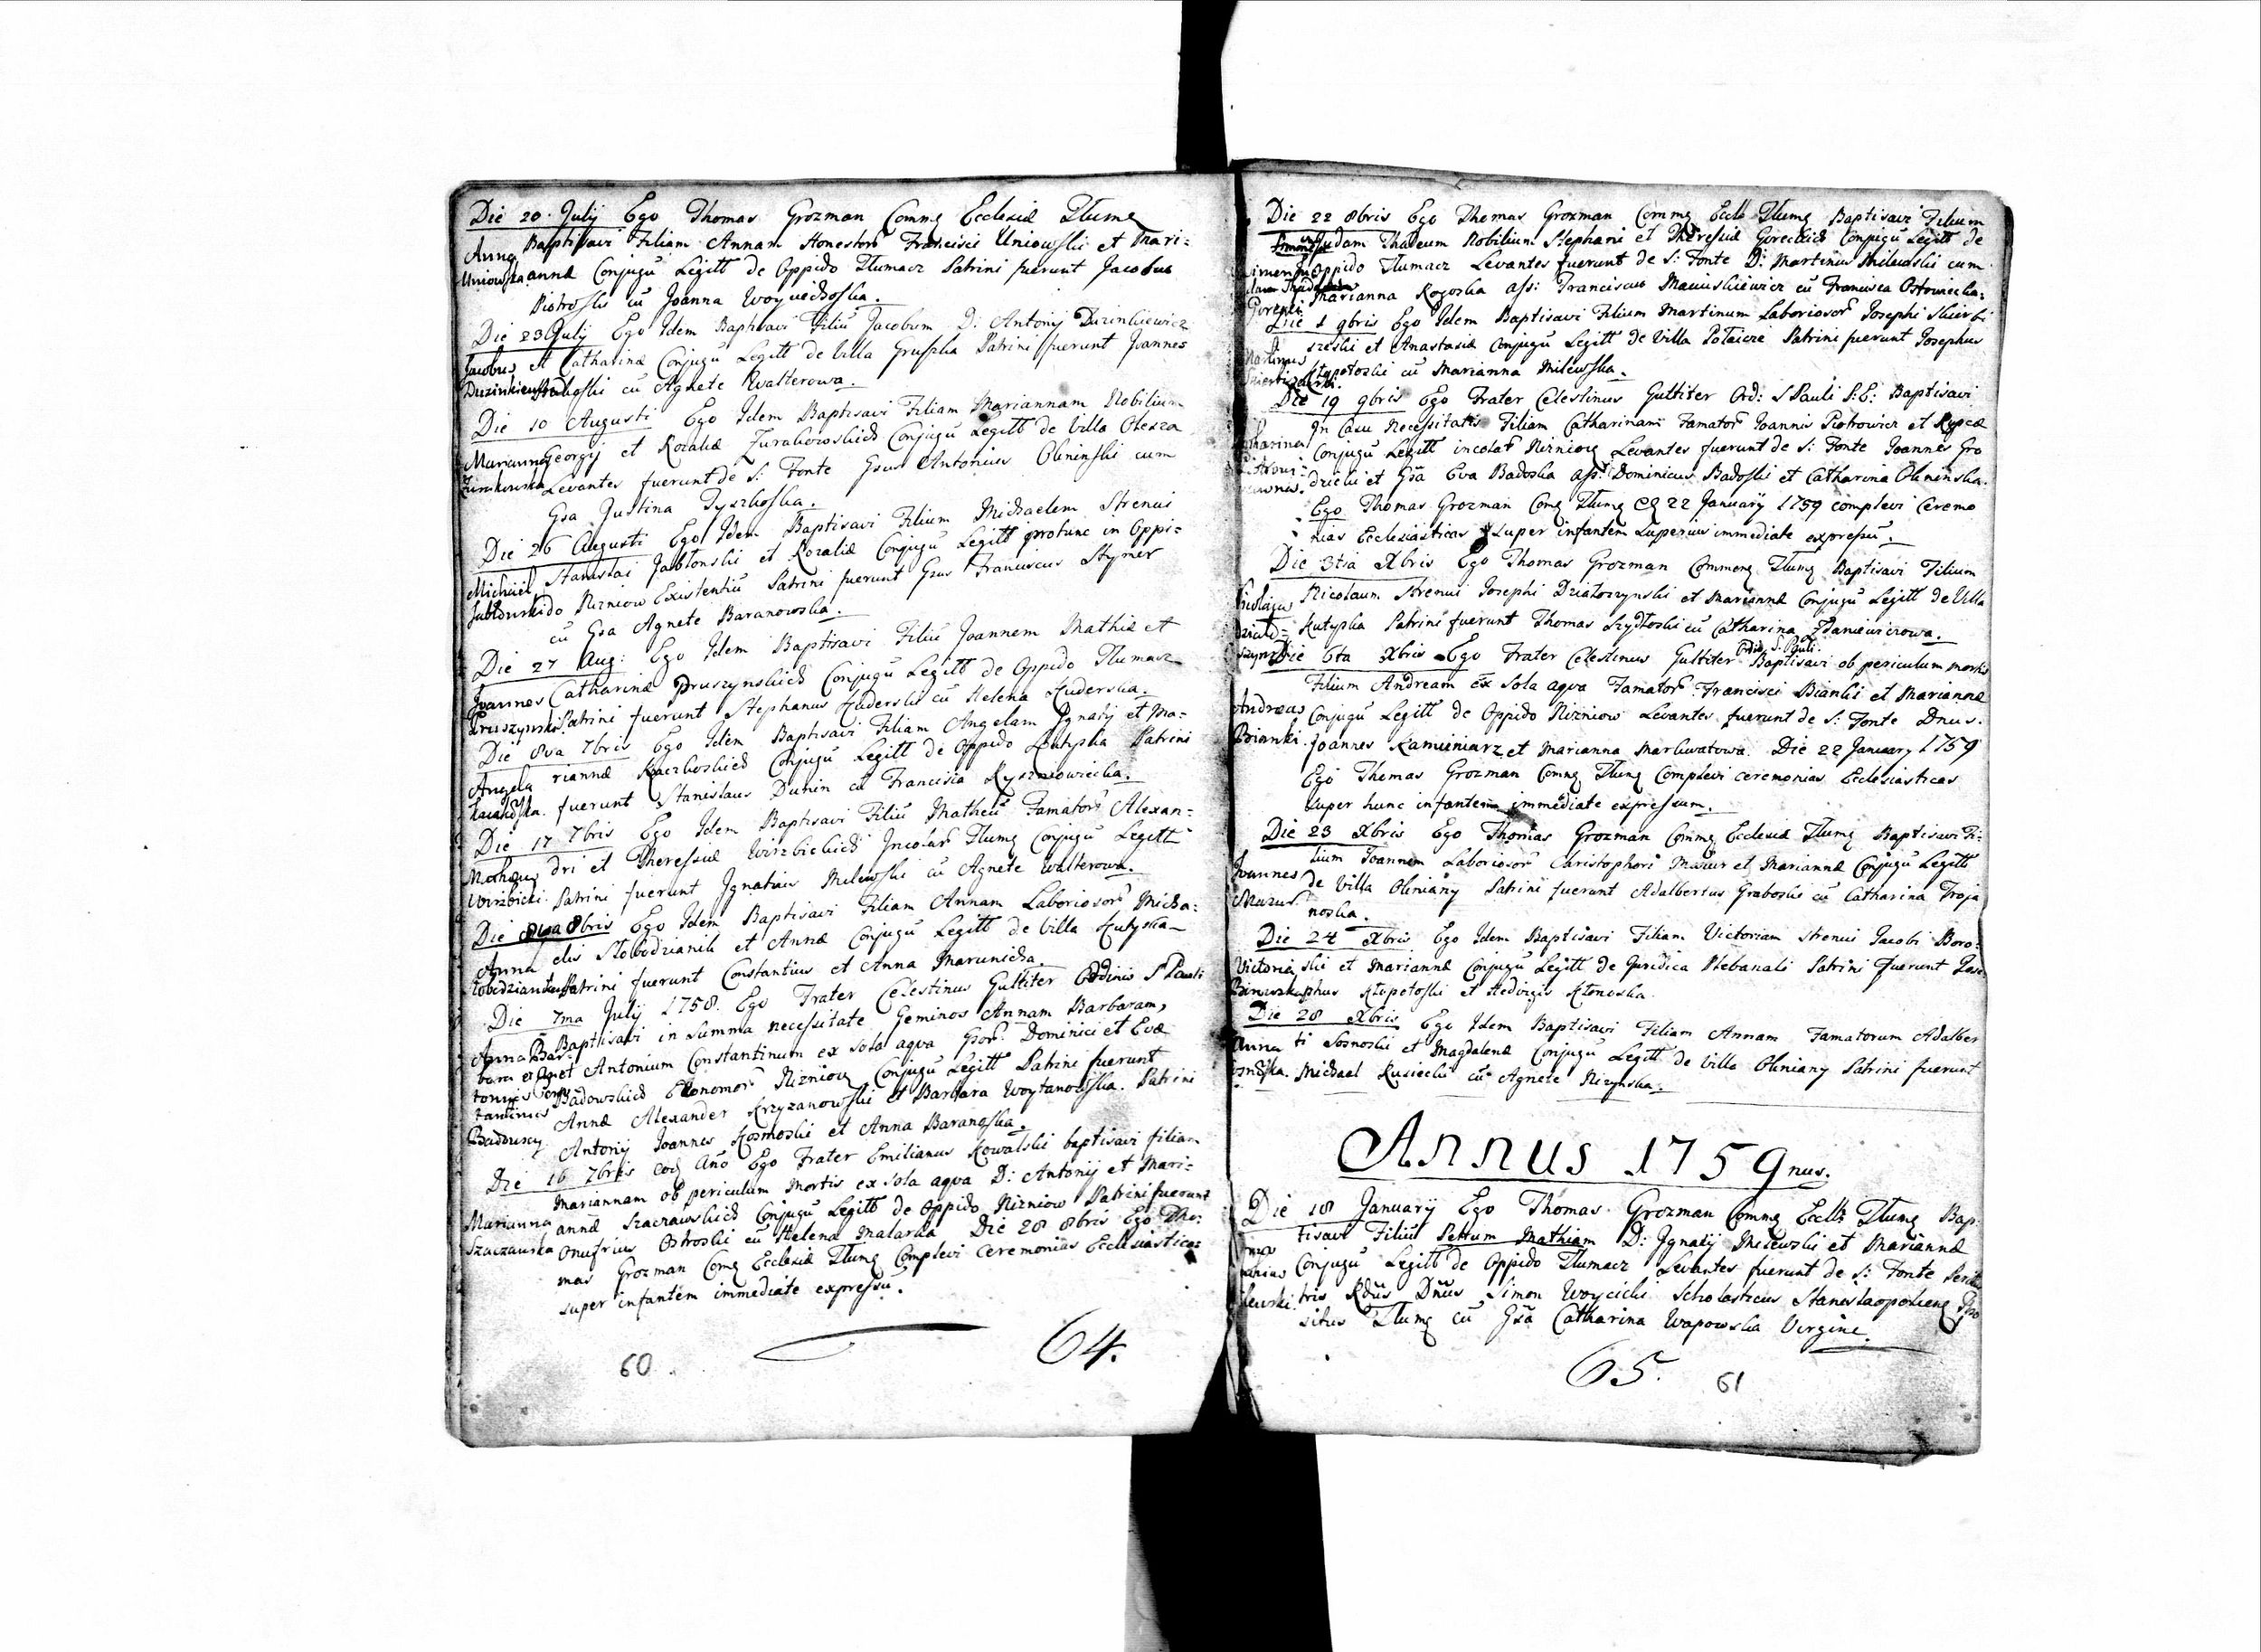 Die 20 July Ego Thomas Grozman Commg Ecclesiæ Tlumg
Anna Baptisavi Filiam Annam Honestor Francisci Uniowski et Mari=
Uniowska annæ Conjugu Legitt de Oppido Tlumacz Patrini fuerunt Jacobus
Piotroski cu Joanna Woyciechoska.
Die 23 July Ego Idem Baptisavi Filiu Jacobum D: Antonij Duzinkiewicz
Jacobus et Catharinæ Conjugu Legitt de Villa Gruszka Patrini fuerunt Joannes
cu Agnete Walterowa.
Die 10 Augusti Ego Idem Baptisavi Filiam Mariannam Nobilium
Marianna Georgij et Rozaliæ Zurakowskich Conjugu Legitt de Villa Olesza
Zurakowska Levantes fuerunt de S: Fonte Gsus Antonius Olininski cum
Gsa Justina Tyszkoska.
Die 26 Augusti Ego Idem Baptisavi Filium Michaelem Strenui
Michael Stanislai Jabłonski et Rozaliæ Conjugu Legitt protunc in Oppi=
Jabłonski do Nizniow Existentiu Patrini fuerunt Gsus Franciscus Styner
cu Gsa Agnete Baranowska.
Die 27 Aug: Ego Idem Baptisavi Filiu Joannem Mathiæ et
Joannes Catharinæ Pruszynskich Conjugu Legitt de Oppido Tlumacz
Pruszynski Patrini fuerunt Stephanus Kuderski cu Helena Kuderska.
Die 8va 7bris Ego Idem Baptisavi Filiam Angelam Ignatij et Ma=
Angela riannæ Kaczkoskich Conjugu Legitt de Oppido Łutyska Patrini
fuerunt Stanislaus Dunin cu Francisca Ryszniowiecka.
Die 17 7bris Ego Idem Baptisavi Filiu Matheu Famator Alexan=
Matheus dri et Theressiæ Wirzbickich Incolar Tlumg Conjugu Legitt
Wirzbicki Patrini fuerunt Ignatius Milewski cu Agnete Walterowa.
Die 8va 8bris Ego Idem Baptisavi Filiam Annam Laboriosor Micha=
Anna elis Słobodzianik et Annæ Conjugu Legitt de Villa Łutyska
Patrini fuerunt Constantius et Anna Marunicha.
Die 7ma July 1758. Ego Frater Celestinus Gultiter Ordinis S Pauli
Anna Bar= Baptisavi in Summa necessitate Geminos Annam Barbaram,
bara et An et Antonium Constantinum ex sola aqva Gsor Dominici et Evæ
tonius Cons Badowskich Ekonomor Nizniow Conjugu Legitt Patrini fuerunt
tantinus Annæ Alexander Krzyzanowski et Barbara Woytanowska. Patrini
Badowscy Antonij Joannes Kosmoski et Anna Baranoska.
Die 16 7bris eod Año Ego Frater Emilianus Kowalski baptisavi filiam
Mariannam ob periculum Mortis ex sola aqva D: Antonij et Mari=
Marianna annæ Szaczawskich Conjugu Legitt de Oppido Nizniow Patrini fuerunt
Szaczawska Onufrius Ostroski cu Helena Malarka Die 28 8bris Ego Tho=
mas Grozman Comg Ecclesiæ Tlumg Complevi Ceremonias Ecclesiasticas
super infantem immediate expressu.
64.
60
Die 22 8bris Ego Thomas Grozman Commg Eccle Tlumg Baptisavi Filium
Judam Thadeum Nobilium Stephani et Theressiæ Goreckich Conjugu Legitt de
Oppido Tlumacz Levantes fuerunt de S: Fonte D: Martinus Milewski cum
Marianna Rogoska ass: Franciscus Maniskiewicz cu Francisca Ostowiecka.
Gorecki. Die 1 9bris Ego Idem Baptisavi Filium Martinum Laboriosor Josephi Skierbi
Martinus szeski et Anastasiæ Conjugu Legitt de Villa Połaicze Patrini fuerunt Josephus
Kłopotoski cu Marianna Milewska.
Die 19 9bris Ego Frater Celestinus Gultiter Ord: S Pauli P: E: Baptisavi
In Casu Necessitatis Filiam Catharinam Famator Joannis Piotrowicz et Rypcæ
Conjugu Legitt incolar Nizniow Levantes fuerunt de S: Fonte Joannes Gro
dzicki et Gsa Eva Badoska ass: Dominicus Badoski et Catharina Olininska.
Ego Thomas Grozman Comg Tlumg 22 January 1759 complevi Ceremo
nias Ecclesiasticas super infantem superius immediate expressu.
Die 3tia Xbris Ego Thomas Grozman Commeng Tlumg Baptisavi Filium
Nicolaum Strenui Josephi Działoszynski et Mariannæ Conjugu Legitt de Villa
Łutyska Patrini fuerunt Thomas Szydłoski cu Catharina Zdaniewiczowa.
Die 6ta Xbris Ego Frater Celestinus Gultiter Ordis S. Pauli Baptisavi ob periculum mortis
Filium Andream ex sola aqva Famator Francisci Bianki et Mariannæ
Andreas Conjugu Legitt de Oppido Nizniow Levantes fuerunt de S: Fonte Dnus.
Bianki Joannes Kamieniarz et Marianna Markwatowa. Die 22 January 1759
Ego Thomas Grozman Commg Tlumg Complevi ceremonias Ecclesiasticas
super hunc infantem immediate expressum.
Die 23 Xbris Ego Thomas Grozman Commg Ecclesiæ Tlumg Baptisavi Fi=
lium Joannem Laboriosor Christophori Mazur et Mariannæ Conjugu Legitt
Joannes de Villa Oleniany Patrini fuerunt Adalbertus Graboski cu Catharina Troja
Mazur noska.
Die 24 Xbris Ego Idem Baptisavi Filiam Victoriam strenui Jacobi Boro=
Victoria ski et Mariannæ Conjugu Legitt de Juridica Plebanali Patrini fuerunt Jose
phus Kłopotoski et Hedvigis Kłonoska.
Die 28 Xbris Ego Idem Baptisavi Filiam Annam Famatorum Adalber
Anna ti Sosnoski et Magdalenæ Conjugu Legitt de Villa Oleniany Patrini fuerunt
Michael Kusiecki cu Agnete Nizynska.
Annus 1759nus.
Die 18 January Ego Thomas Grozman Commg Eccles Tlumg Bap=
tisavi Filiu Petrum Mathiam D: Ignatij Milewski et Mariannæ
Conjugu Legitt de Oppido Tlumacz Levantes fuerunt de S: Fonte
Rdus Dnus Simon Woycicki Scholasticus Stanislaopolieng
situs Tlumg cu Gsa Catharina Wapowska Virgine.
65.
61